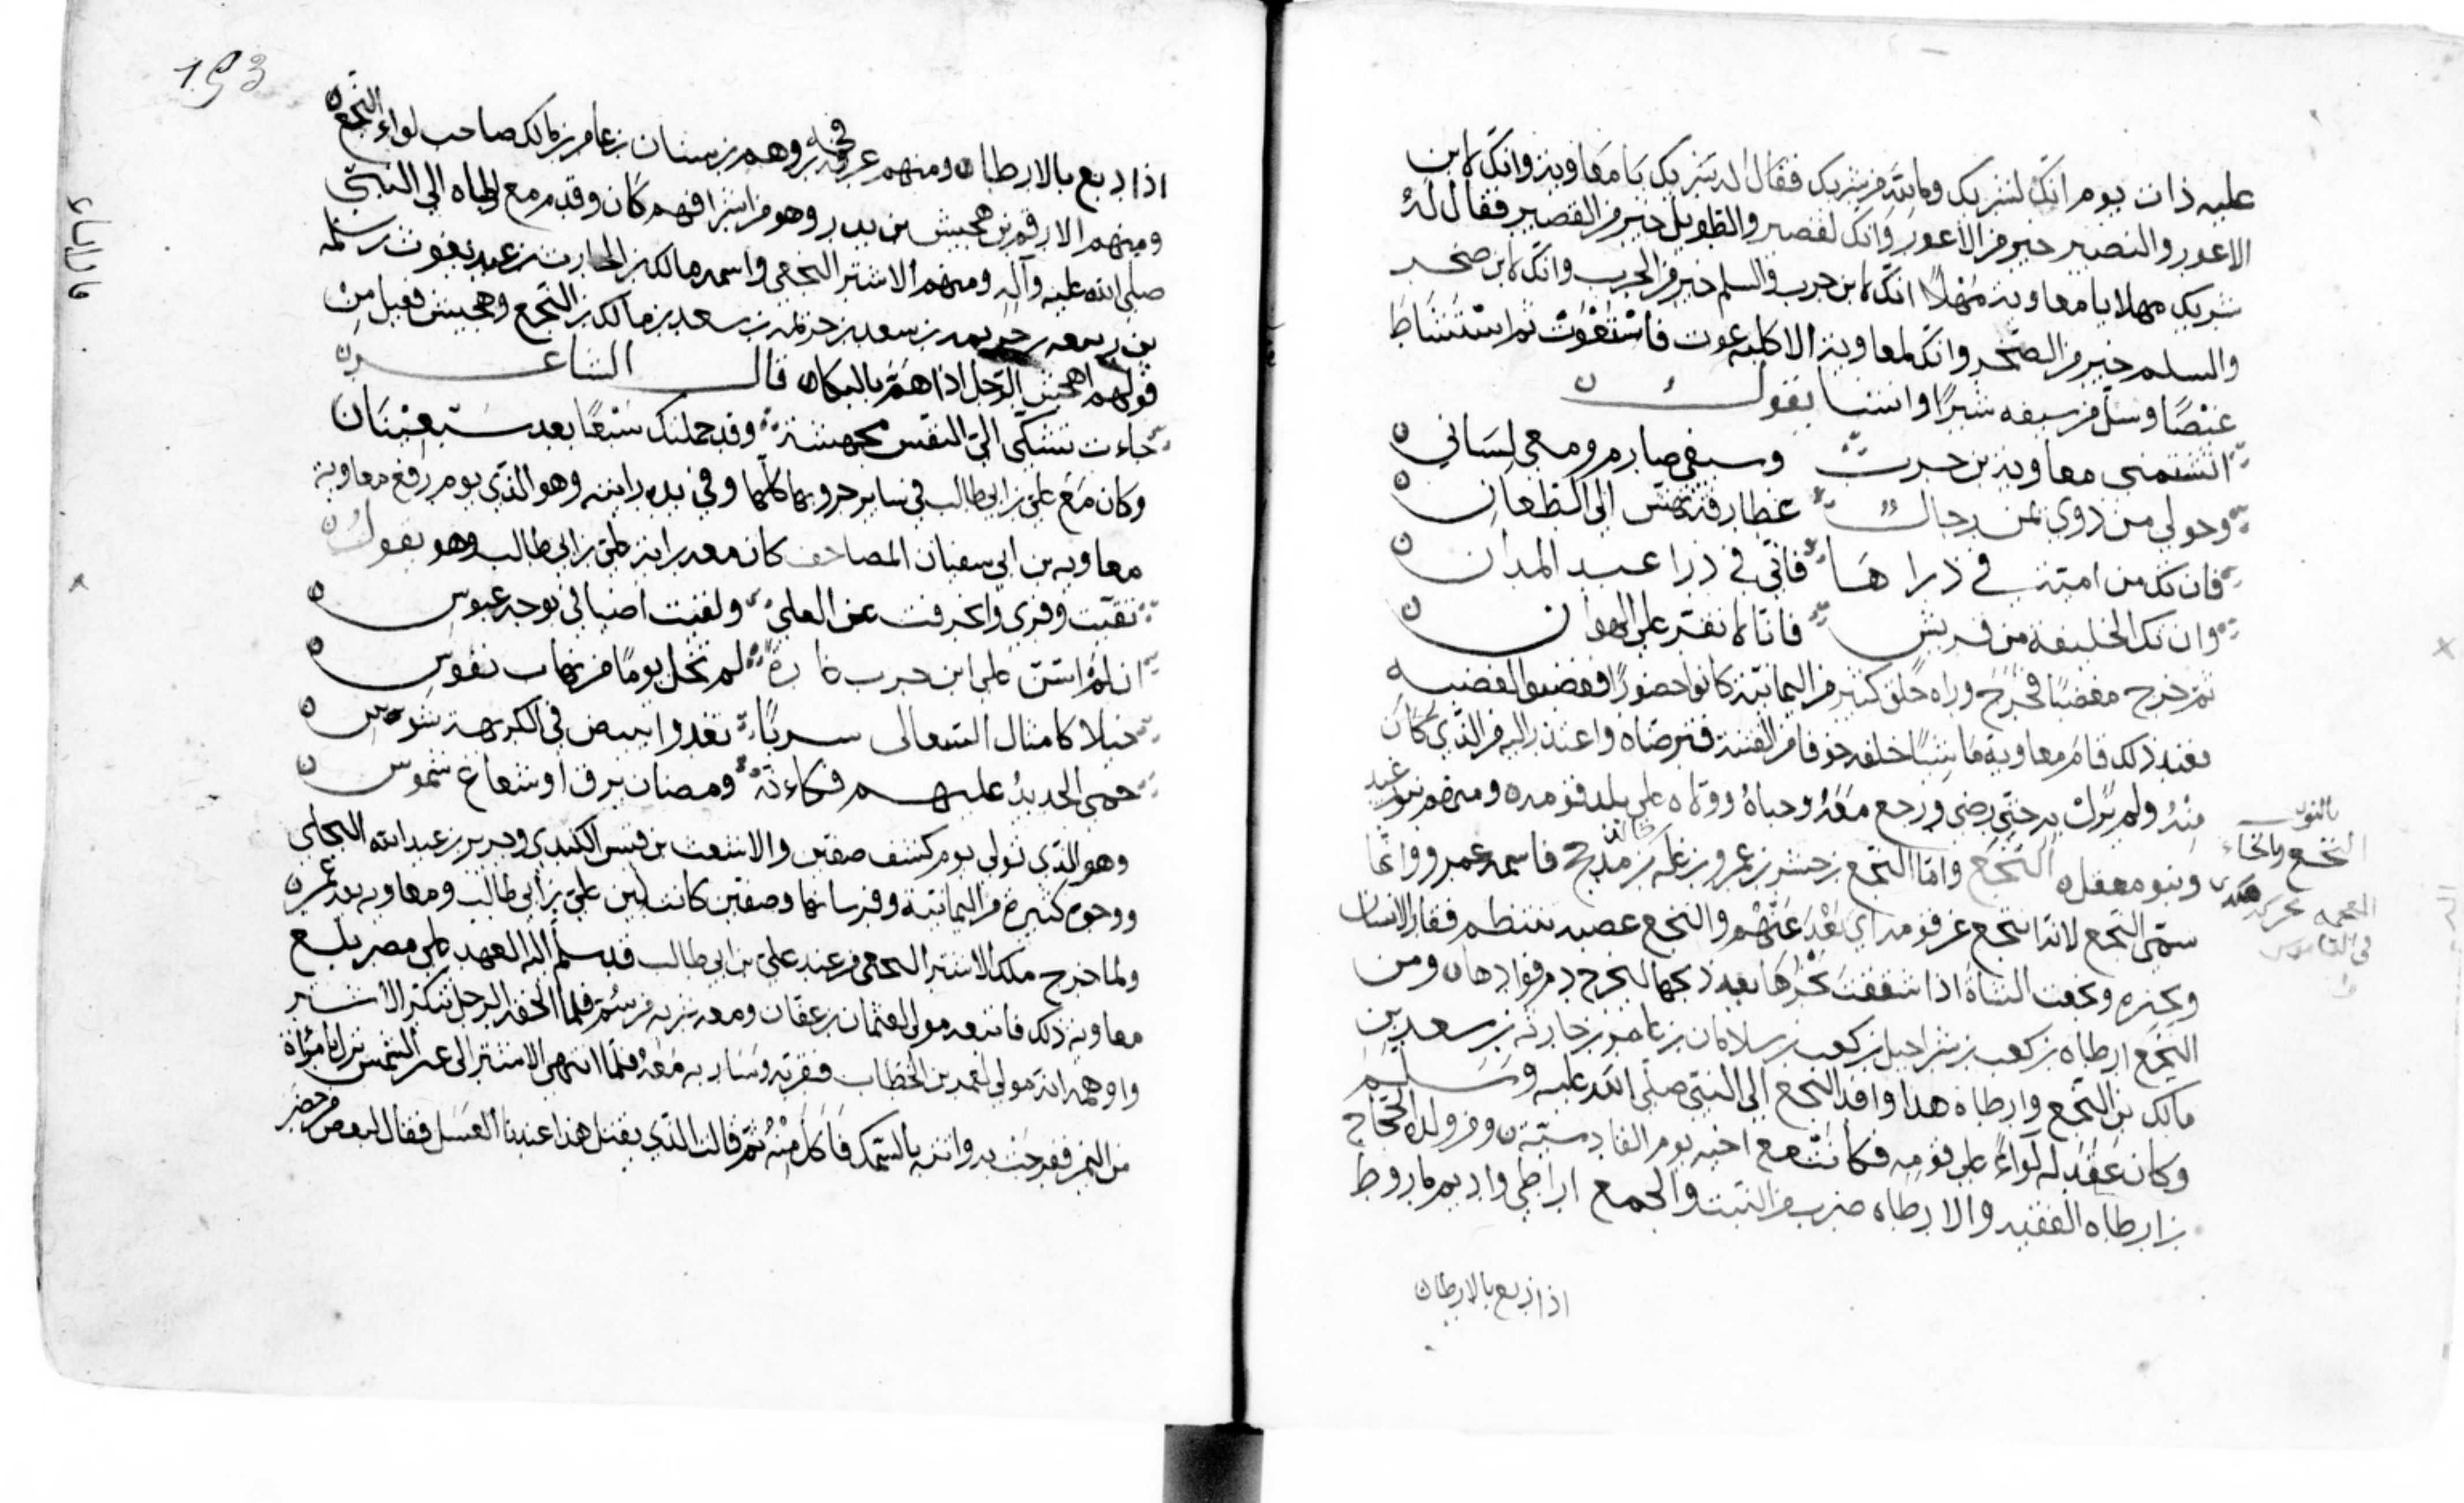 عليه ذات يوم انّك لشريك وما لله من شريك فقال له شريك يا معاوية وانّك لابن
الاعور والبصير خير من الاعور وانّك لقصير والطويل خير من القصير فقال له
شريك مهلا يا معاوية مهلًا انّك لابن حرب والسلم خير من الحرب وانّك لابن صخر
والسلم خير من الصخر وانّك لمعاوية الا كلبة عوت فاستعوت ثم استشاط
غضبًا وسل من سيفه شبرًا وانشا يقول
اتشتمنى معاوية بن حرب وسيفي صارم ومعي لساني
وحولي من ذوي يمن رجال غطارفة تهش الى الطعان
فان تك من امية في ذراها فاني في ذرا عبد المدان
وان تك الخليفة من قريش فانا لا نقر على الهوان
ثم خرج مغضبًا فخرج وراه خلق كثير من اليمانية كانوا حضورًا فغضبوا لغضبه
فعند ذلك قام معاوية ماشيًا خلفه خوفا من الفتنة فترضاه واعتذر اليه من الذي كان
منه ولم يزل به حتى رضي ورجع معه وحباه وولاه على بلد قومه ومنهم بنو عبد
وبنو معقل النخع وامّا النخع بن جسر بن عمرو بن عله بن خالد بن مذحج فاسمه عمرو وانما
سمّي النخع لانه انتخع عن قومه اي بَعُدَ عنهم والنخع عصبه تنتظم فقار الانسان
وغيره ونخعت الشاة اذا شققت نحرها بعد ذبحها ليخرج دم فوادها ومن
النخع ارطاه بن كعب بن شراحيل بن كعب بن سلامان بن عامر بن حارثه بن سعد بن
مالك بن النخع وارطاه هذا وافد النخع الى النبي صلى الله عليه وسلم
وكان عقد له لواءً على قومه فكانت مع اخيه يوم القادسية ومن ولده الحجّاج
بن ارطاه الفقيه والارطاه ضرب من النبت والجمع اراطي واديم ماروط
بالنون
النخع والخاء
المعجمه محركه
في القاموس
اذا دبع بالارطا
اذا دبغ بالارطا ومنهم عرفجة بن وهم بن سنان بن عامر بن مالك صاحب لواء النخع
ومنهم الارقم بن جهيش بن بدر وهو من اشرافهم كان وقدم مع ارطاه الى النبيّ
صلى الله عليه وآله ومنهم الاشتر النخعي واسمه مالك بن الحارث بن عبد يغوث بن سلمه
بن ربيعه بن جذيمه بن سعد بن مالك بن النخع وجهيش فعيل من
قولهم اجهش الرّجل اذا همّ بالبكا قال الشاعر
جاءت تشكّى اليّ النفس مجهشة وقد حملتك سبعًا بعد سبعينان
وكان مع علي بن ابي طالب في ساير حروبها كلها وفي يده رايته وهو الذي يوم رفع معاوية
معاويه بن ابي سفيان المصاحف كان معه راية علي بن ابي طالب وهو يقول
بقيت وفري وانحرفت عن العلي ولقيت اضيافي بوجه عبوس
ان لم اشن على ابن حرب غارة لم تخل يومًا من نهاب نفوس
خيلا كامثال السعالى سربًا تغدوا ببيض في الكريهة شوس
حمي الحديد عليهم فكانه ومضان برق او شعاع شموس
وهو الذي تولى يوم كشف صفين والاشعث بن قيس الكندي وجرير بن عبد الله البجلي
ووجوه كثيرة من اليمانية وفرسانها وصفين كانت بين علي بن ابي طالب ومعاويه بعد
ولما خرج ملك الاشتر النخعي من عند علي بن ابي طالب قد سلم اليه العهد على مصر بلغ
معاويه ذلك فاتبعه مولى لعثمان بن عفان ومعه شربه من سُمّ فلما الحقه الرجل تنكر الاشتر
واوهمه انه مولى لعمر بن الخطاب فقربه وسار به معه فلما انتهى الاشتر الى عين الشمس
فقدحت به واتته بالسمك فاكل منه ثم قالت الذي يقتل هذا عندنا العسل فقال لبعض من حضر